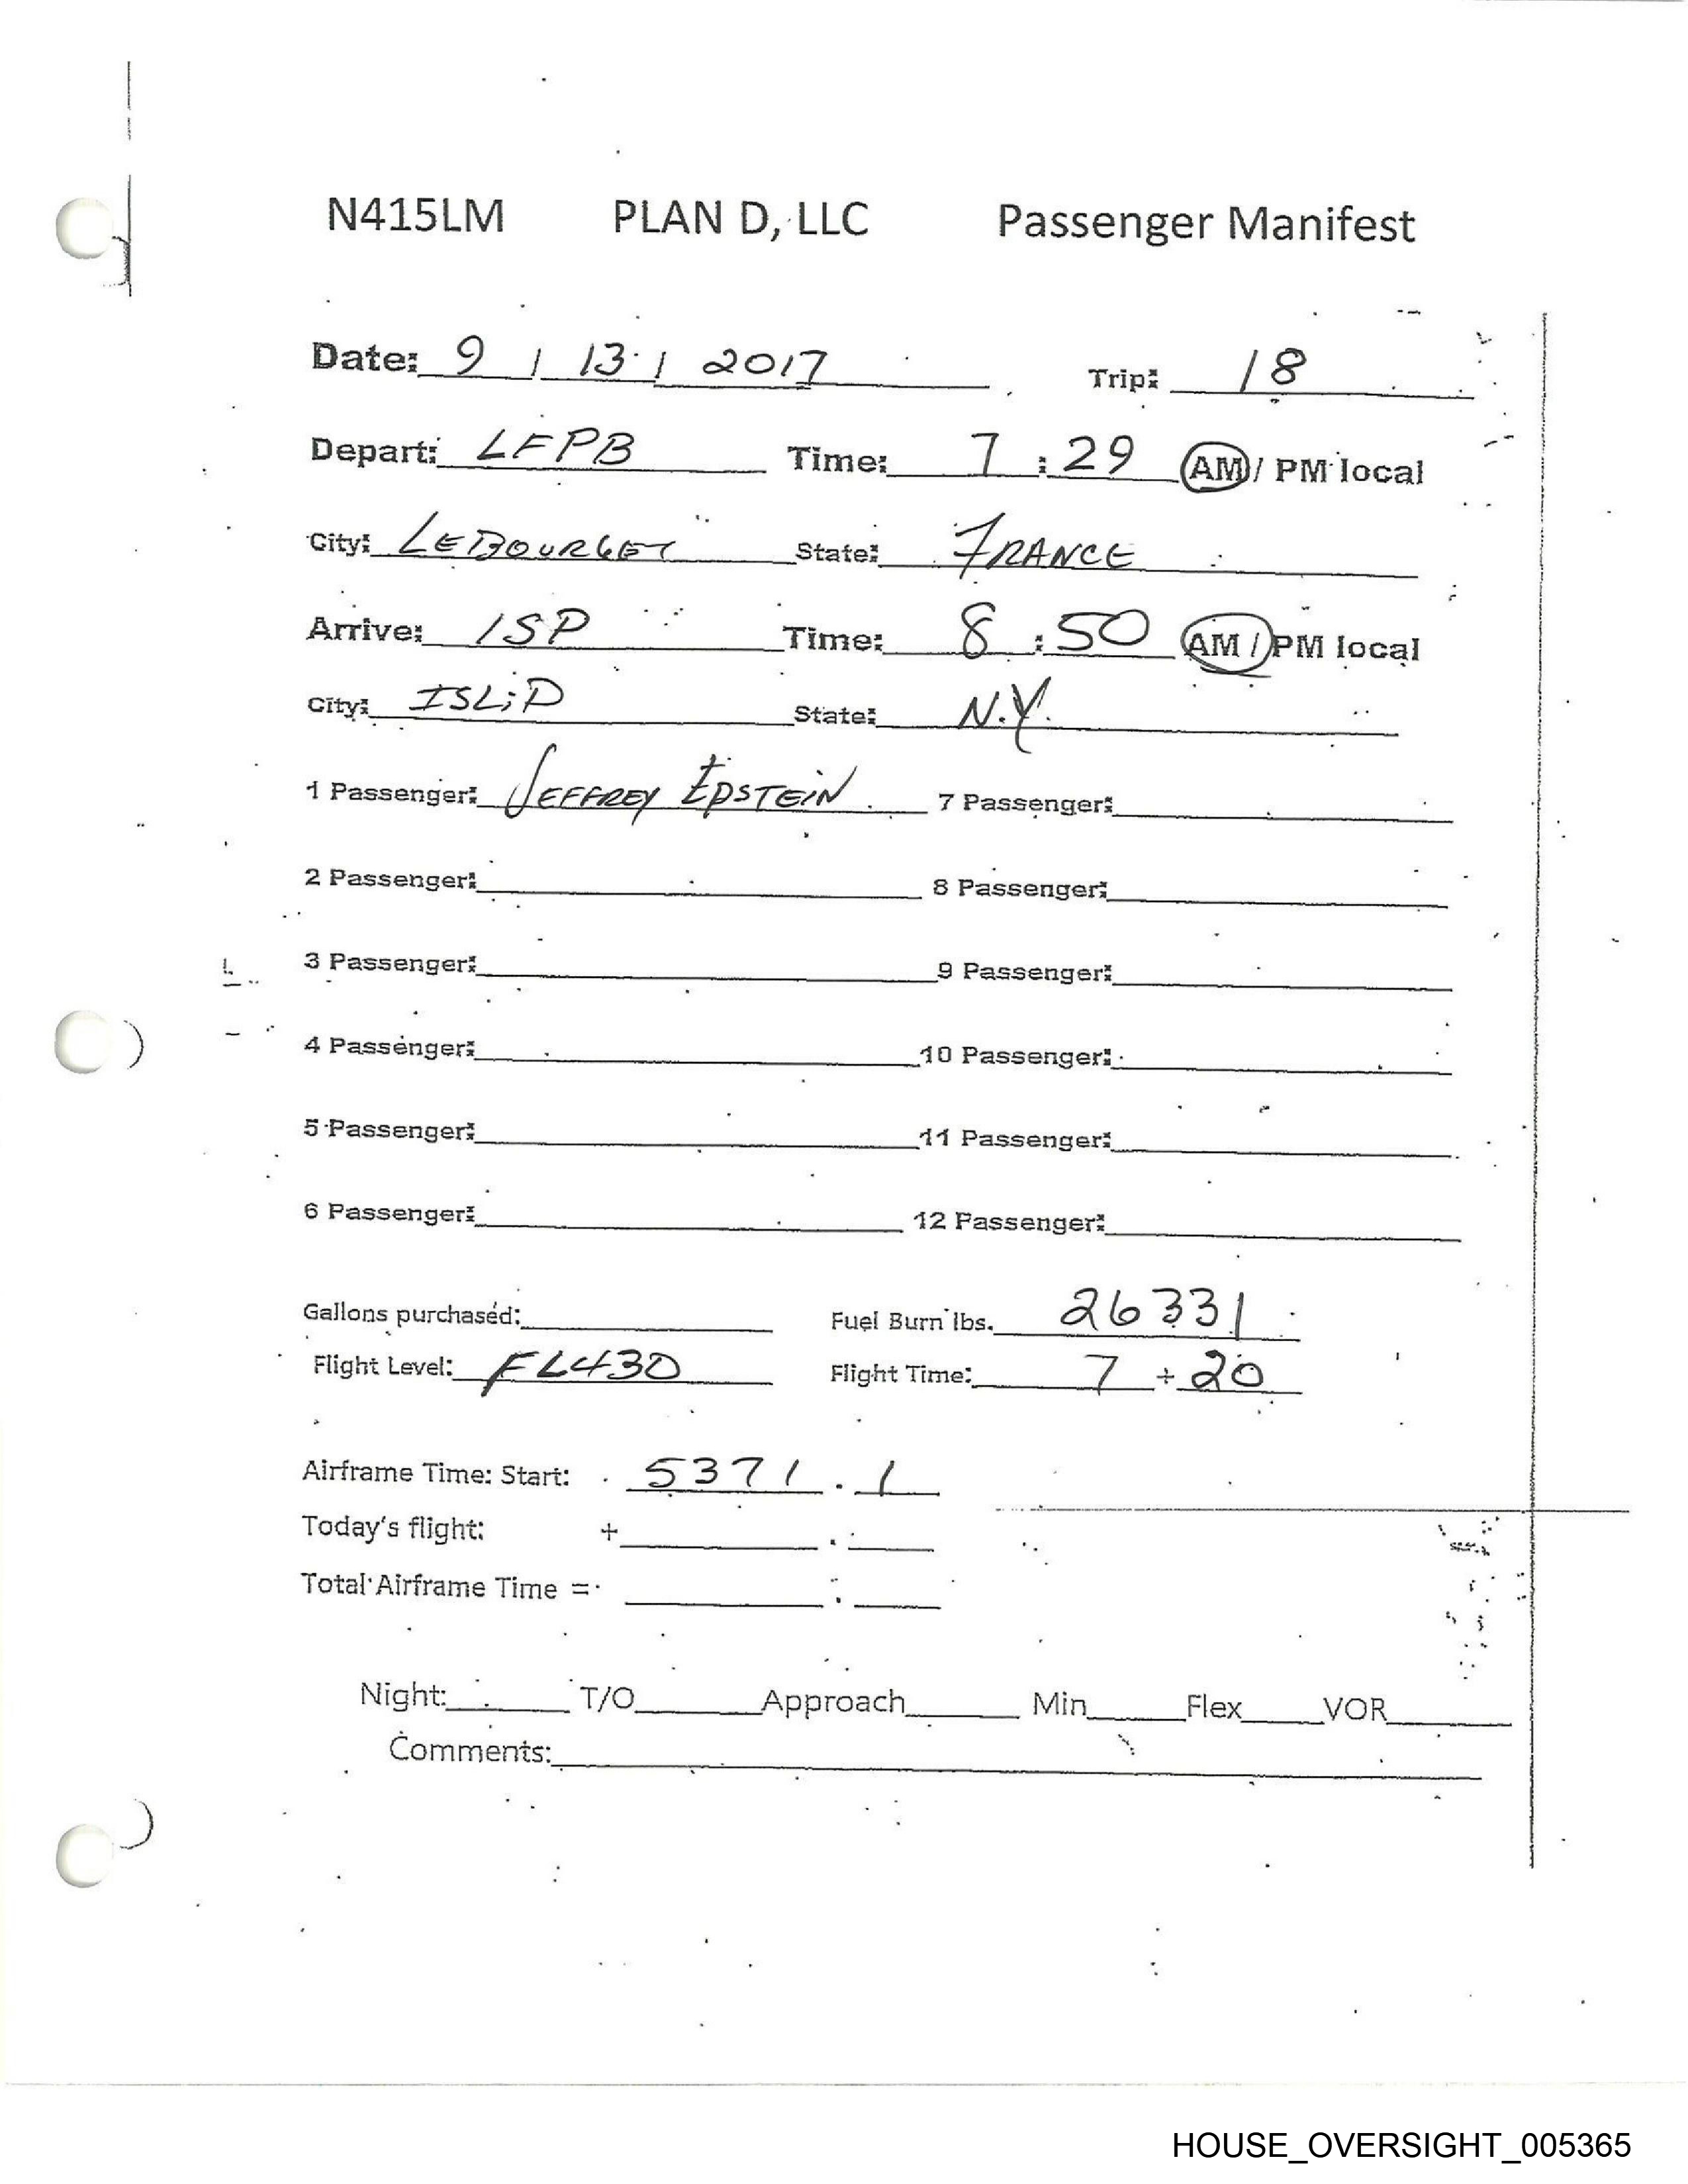 N415LM PLAN D, LLC Passenger Manifest
Date: 9 / 13 / 2017 Trip: 18
Depart: LFPB Time: 7 : 29 AM / PM local
City: LEBOURGET State: FRANCE
Arrive: ISP Time: 8 : 50 AM / PM local
City: ISLiP State: N.Y.
1 Passenger: JEFFREY EPSTEiN 7 Passenger:
2 Passenger: 8 Passenger:
3 Passenger: 9 Passenger:
4 Passenger: 10 Passenger:
5 Passenger: 11 Passenger:
6 Passenger: 12 Passenger:
Gallons purchased: Fuel Burn lbs. 26331
Flight Level: FL430 Flight Time: 7 + 20
Airframe Time: Start: 5371 . 1
Today's flight: + .
Total Airframe Time = :
Night: T/O Approach Min Flex VOR
Comments:
HOUSE_OVERSIGHT_005365